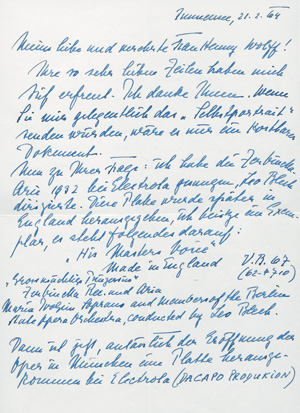 21.2.64
Meine liebe und verehrte Frau Henny Wolff!
Ihre so sehr lieben Zeilen haben mich
tief erfreut. Ich danke Ihnen. Wenn
Sie mir gelegentlich das „Selbstportrait"
senden würden, wäre es mir ein kostbares
Dokument.
Nun zu Ihrer Frage: ich habe die Zerbinetta
Arie 1932 bei Electrola gesungen, Leo Blech
dirigierte. Diese Platte wurde später in
England herausgegeben, ich besitze ein Exem-
plar, es steht folgendes darauf:
„His Masters Voice"
Made in England V.B. 67
„Grossmächtige Prinzessin"
Zerbinetta Rec. and Aria
Maria Ivogün Soprano and members of the Berlin
State opera Orchestra, conducted by Leo Blech.
Dann ist jetzt, anlässlich der Eröffnung der
Oper in München eine Platte herausge-
kommen bei Electrola (DACAPO PRODUKTION)